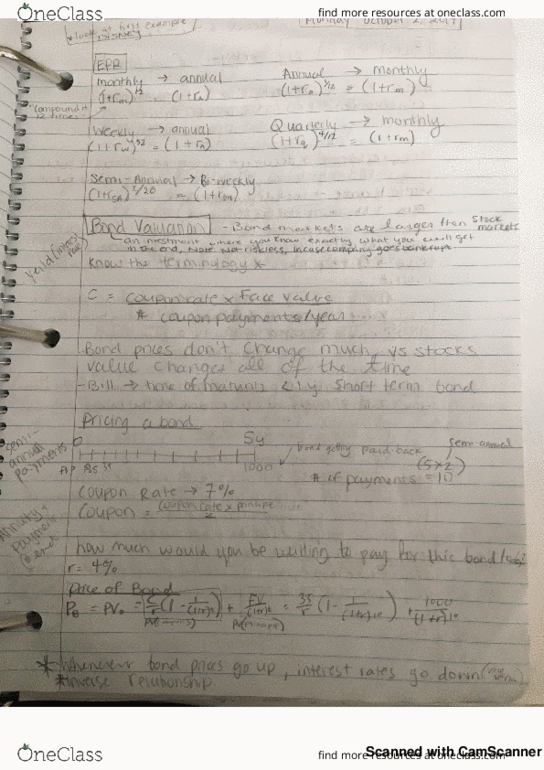 OneClass
find more resources at oneclass.com
* look at first example
Monday October 2, 2017
EPR
monthly → annual
Annual → monthly
(1+rm)^12 = (1+ra)
(1+ra)^1/12 = (1+rm)
"compound it 12 times"
Weekly → annual
Quarterly → monthly
(1+rw)^52 = (1+ra)
(1+rq)^4/12 = (1+rm)
Semi-Annual → Bi-weekly
Bond Valuation - Bond markets are larger than stock markets
an investment where you know exactly what you will get
in the end, more not riskless, incase company goes bankrupt
know the terminology *
C = coupon rate x Face value
# coupon payments/year
Bond prices don't change much, vs stocks
value changes all of the time
- Bill → time of maturity < 1y short term bond
Pricing a bond
semi-annual payments
0
5y
bond getting paid back
semi-annual
(5x2)
1000
# of payments = 10
Coupon Rate → 7%
Coupon = coupon rate x
2
Annuity + payment @ end
how much would you be willing to pay for this bond
r = 4%
Price of Bond
PB = PV0 = C/r (1 - 1/(1+r)^n) + FV/(1+r)^n = 35/r (1 - 1/(1+r)^10) + 1000/(1+r)^10
* Whenever bond prices go up, interest rates go down
* inverse relationship
OneClass
find more resources at oneclass.com
Scanned with CamScanner